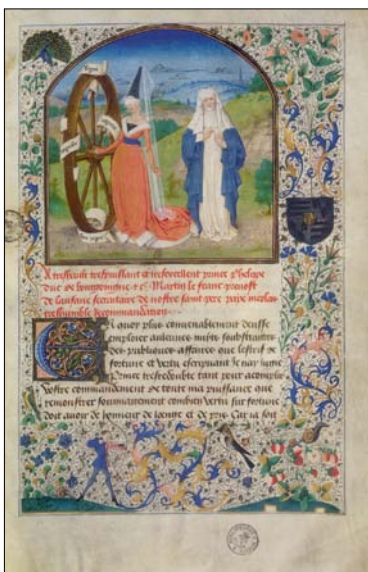 A treshault trespuissant et tresexcellent prince Phelipe
duc de bourgoingne +c. Martin le franc prevost
de lausane secretaire de nostre saint pere pape nicolas
treshumble recommandation
quoy plus convenablement deusse
employer aulcunes
des publiques affaires que lestrif de
fortune et vertu escripvant Je nay
Prince tresredoubte tant pour acomplir
vostre commandement de toute ma puissance que
remonstrer sommairement combien vertu sur fortune
doit avoir de honneur de loenge et de pris Car ia soit